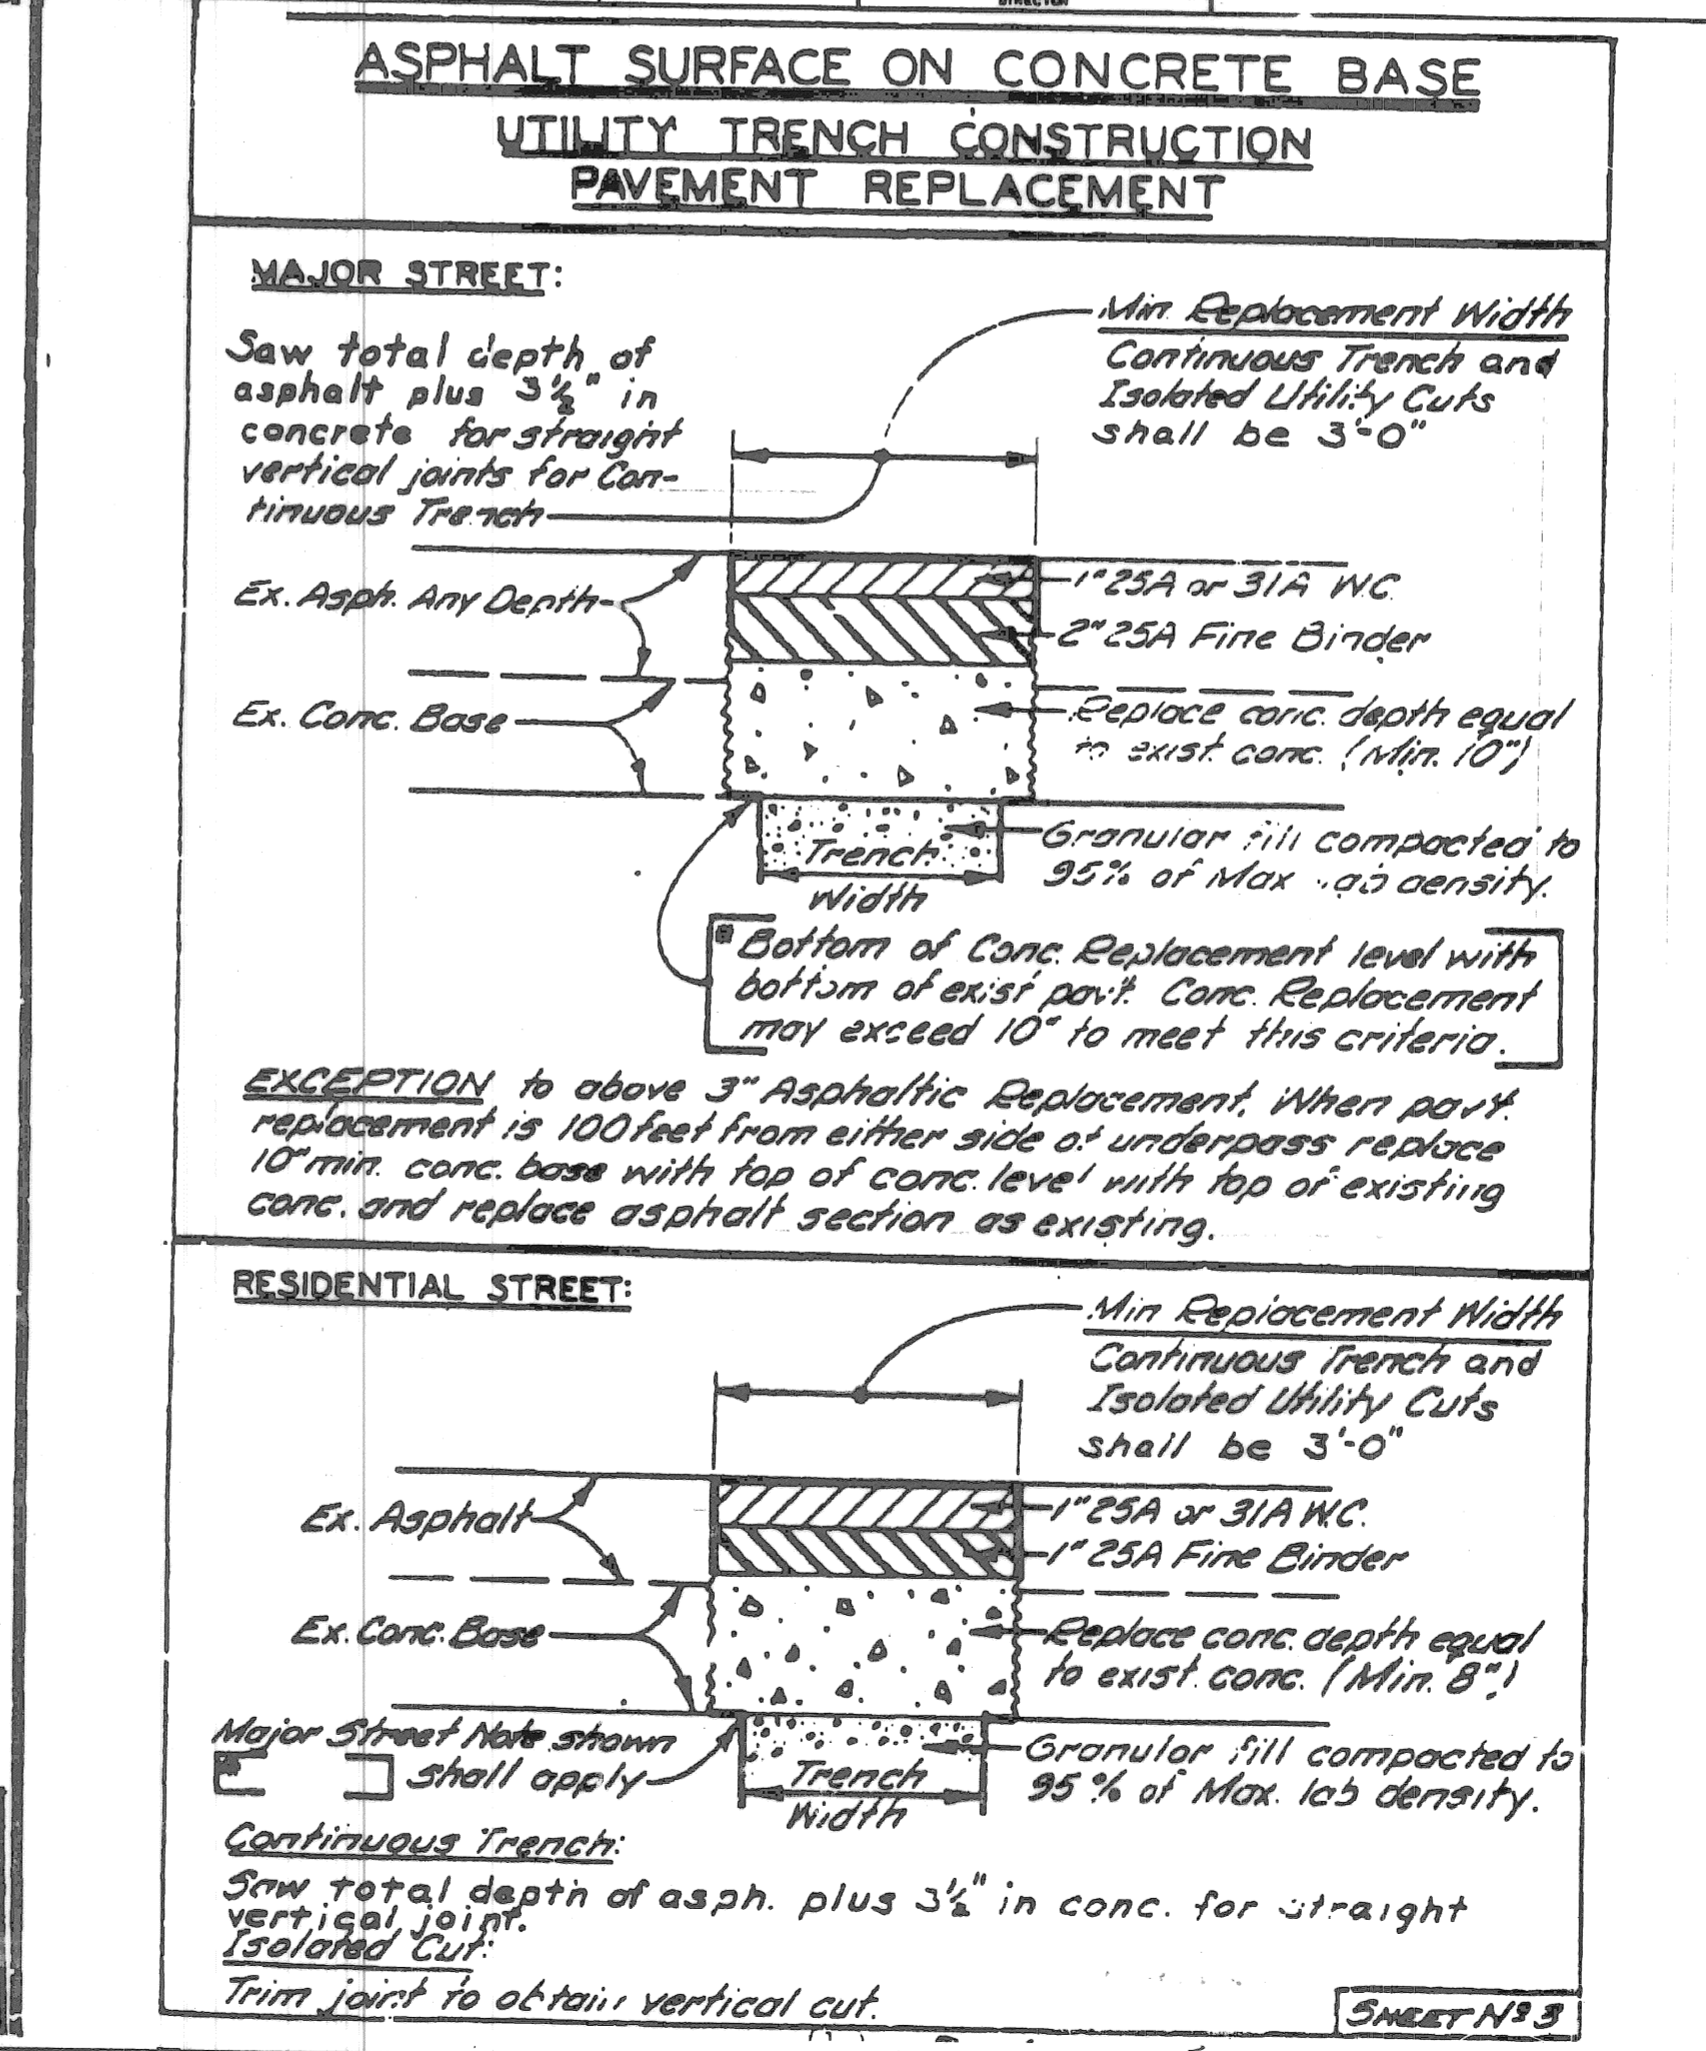 DIRECTOR
ASPHALT SURFACE ON CONCRETE BASE
UTILITY TRENCH CONSTRUCTION
PAVEMENT REPLACEMENT
MAJOR STREET:
Saw total depth of
asphalt plus 3½" in
concrete for straight
vertical joints for Con-
tinuous Trench
Min. Replacement Width
Continuous Trench and
Isolated Utility Cuts
shall be 3'-0"
Ex. Asph. Any Depth
1" 25A or 31A W.C.
2" 25A Fine Binder
Ex. Conc. Base
Replace conc. depth equal
to exist. conc. (Min. 10")
Granular fill compacted to
95% of Max lab density.
Trench
Width
Bottom of Conc. Replacement level with
bottom of exist pav't. Conc. Replacement
may exceed 10" to meet this criteria.
EXCEPTION to above 3" Asphaltic Replacement. When pav't.
replacement is 100 feet from either side of underpass replace
10" min. conc. base with top of conc. level with top of existing
conc. and replace asphalt section as existing.
RESIDENTIAL STREET:
Min Replacement Width
Continuous Trench and
Isolated Utility Cuts
shall be 3'-0"
Ex. Asphalt
1" 25A or 31A W.C.
1" 25A Fine Binder
Ex. Conc. Base
Replace conc. depth equal
to exist. conc. (Min. 8")
Major Street Note shown
shall apply
Granular fill compacted to
95% of Max. lab density.
Trench
Width
Continuous Trench:
Saw total depth of asph. plus 3½" in conc. for straight
vertical joint.
Isolated Cut:
Trim joint to obtain vertical cut.
SHEET Nº 3